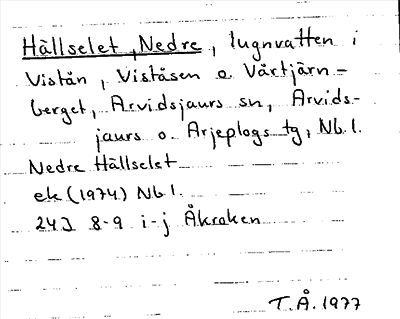 Hällselet, Nedre, lugnvatten i
Vistån, Viståsen o Vårtjärn-
berget, Arvidsjaurs sn, Arvids-
jaurs o. Arjeplogs tg, Nb l.
Nedre Hällselet
ek (1974) Nb l.
24J 8-9 i-j Åkroken
T.Å. 1977